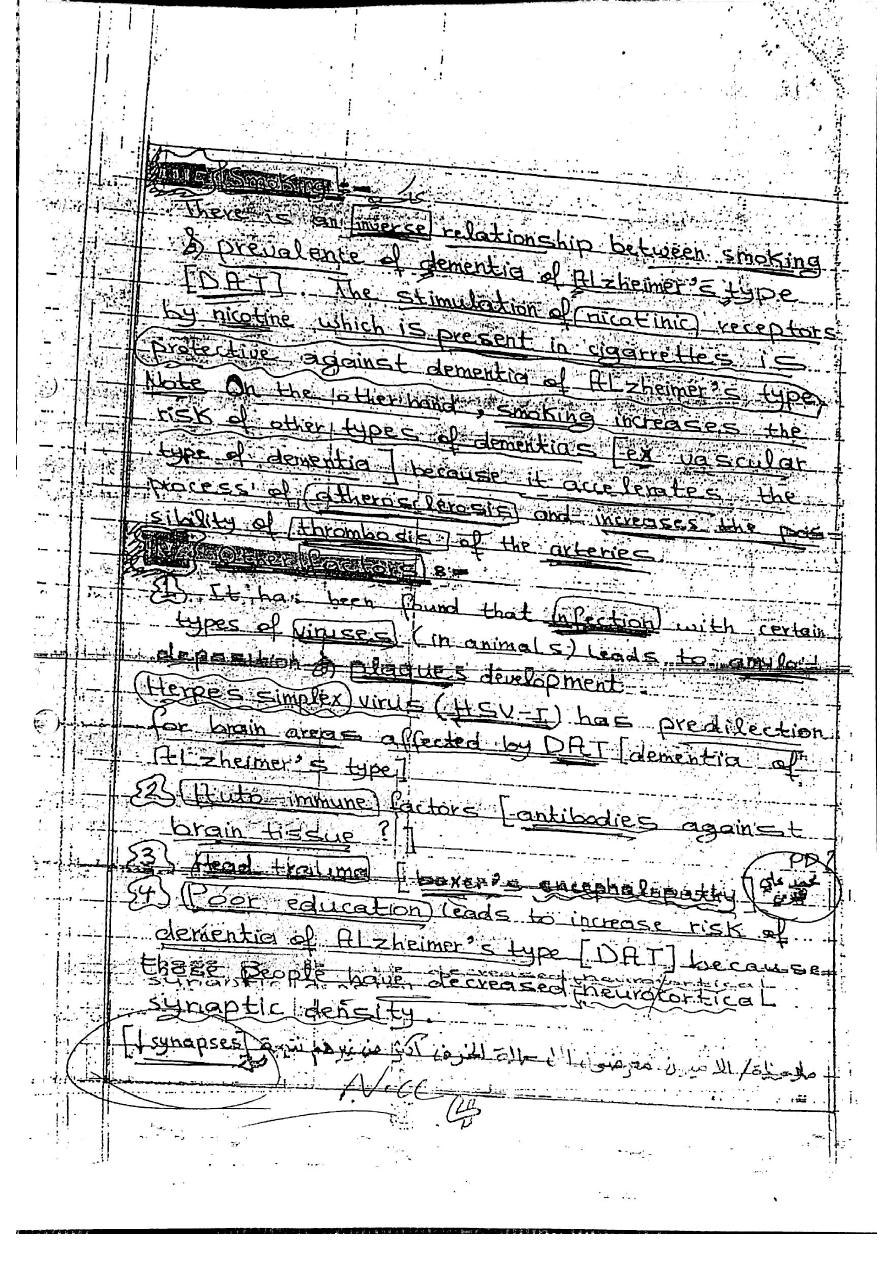 Smoking :-
There is an inverse relationship between smoking
& prevalente of dementia of Alzheimer's type
[DAT]. The stimulation of nicotinic receptors
by nicotine which is present in cigarrettes is
protective against dementia of Alzheimer's type,
Note On the other hand, smoking increases the
risk of other types of dementias [ex vascular
type of dementia] because it accelerates the
process of atherosclerosis and increases the pos-
sibility of thrombodis of the arteries.
Other factors :-
1 It has been found that infection with certain
types of viruses (in animals) leads to amyloid
deposition & plaques development.
Herpes simplex virus (HSV-I) has predilection
for brain areas affected by DAT [dementia of
Alzheimer's type]
2 Auto immune factors [antibodies against
brain tissue ?]
3 Head trauma [boxer's encephalopathy]
4 Poor education leads to increase risk of
dementia of Alzheimer's type [DAT] because
these people have decreased neurocortical
synaptic density.
[↓synapses]